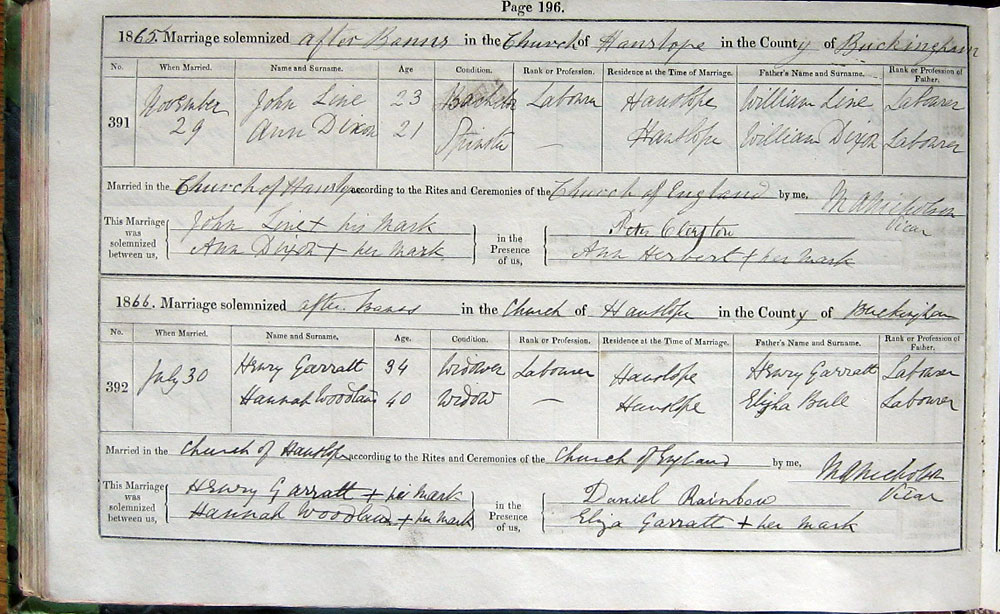 Page 196.
1865. Marriage solemnized after Banns in the Church of Hanslope in the County of Buckingham
No. When Married. Name and Surname. Age Condition. Rank or Profession. Residence at the Time of Marriage. Father's Name and Surname. Rank or Profession of Father.
391 November 29 John Line 23 Bachelor Labourer Hanslope William Line Labourer
Ann Dixon 21 Spinster — Hanslope William Dixon Labourer
Married in the Church of Hanslope according to the Rites and Ceremonies of the Church of England by me, M A Nicholson Vicar
This Marriage was solemnized between us, John Line + his mark in the Presence of us, Peter Clayton
Ann Dixon + her mark Ann Herbert + her mark
1866. Marriage solemnized after Banns in the Church of Hanslope in the County of Buckingham
No. When Married. Name and Surname. Age. Condition. Rank or Profession. Residence at the Time of Marriage. Father's Name and Surname. Rank or Profession of Father.
392 July 30 Henry Garratt 34 Widower Labourer Hanslope Henry Garratt Labourer
Hannah Woodland 40 Widow — Hanslope Elijha Bull Labourer
Married in the Church of Hanslope according to the Rites and Ceremonies of the Church of England by me, M A Nicholson Vicar
This Marriage was solemnized between us, Henry Garratt + his mark in the Presence of us, Daniel Rainbow
Hannah Woodland + her mark Eliza Garratt + her mark